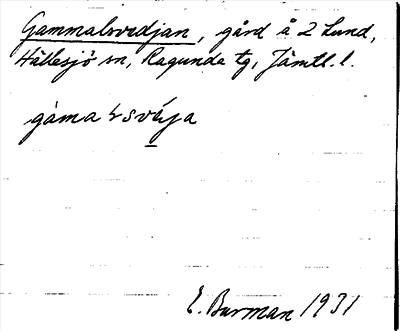 Gammalsvedjan, gård å 2 Lund,
Hällesjö sn, Ragunda tg, Jämtl. l.
E. Burman 1931